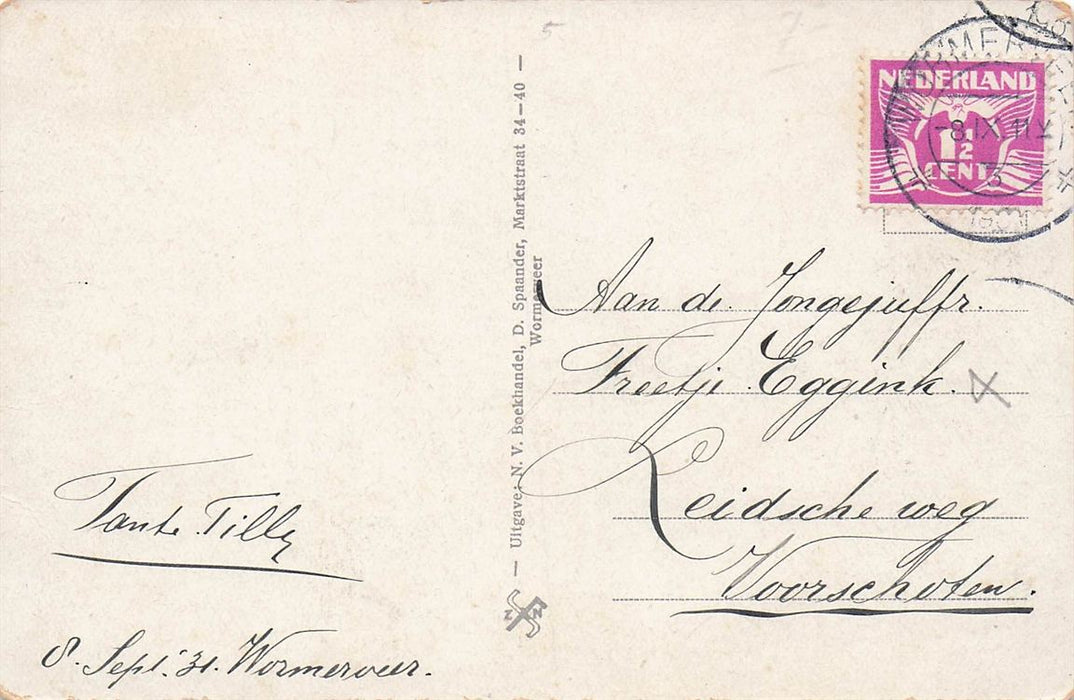 5
NEDERLAND
1½
CENT
WORMERVEER
-8.IX.11
3
1931
Aan de Jongejuffr.
Freetji Eggink.
Leidsche weg
Voorschoten.
— Uitgave: N. V. Boekhandel, D. Spaander, Marktstraat 34—40 —
Wormerveer
Tante Tilly
8. Sept. '31. Wormerveer.